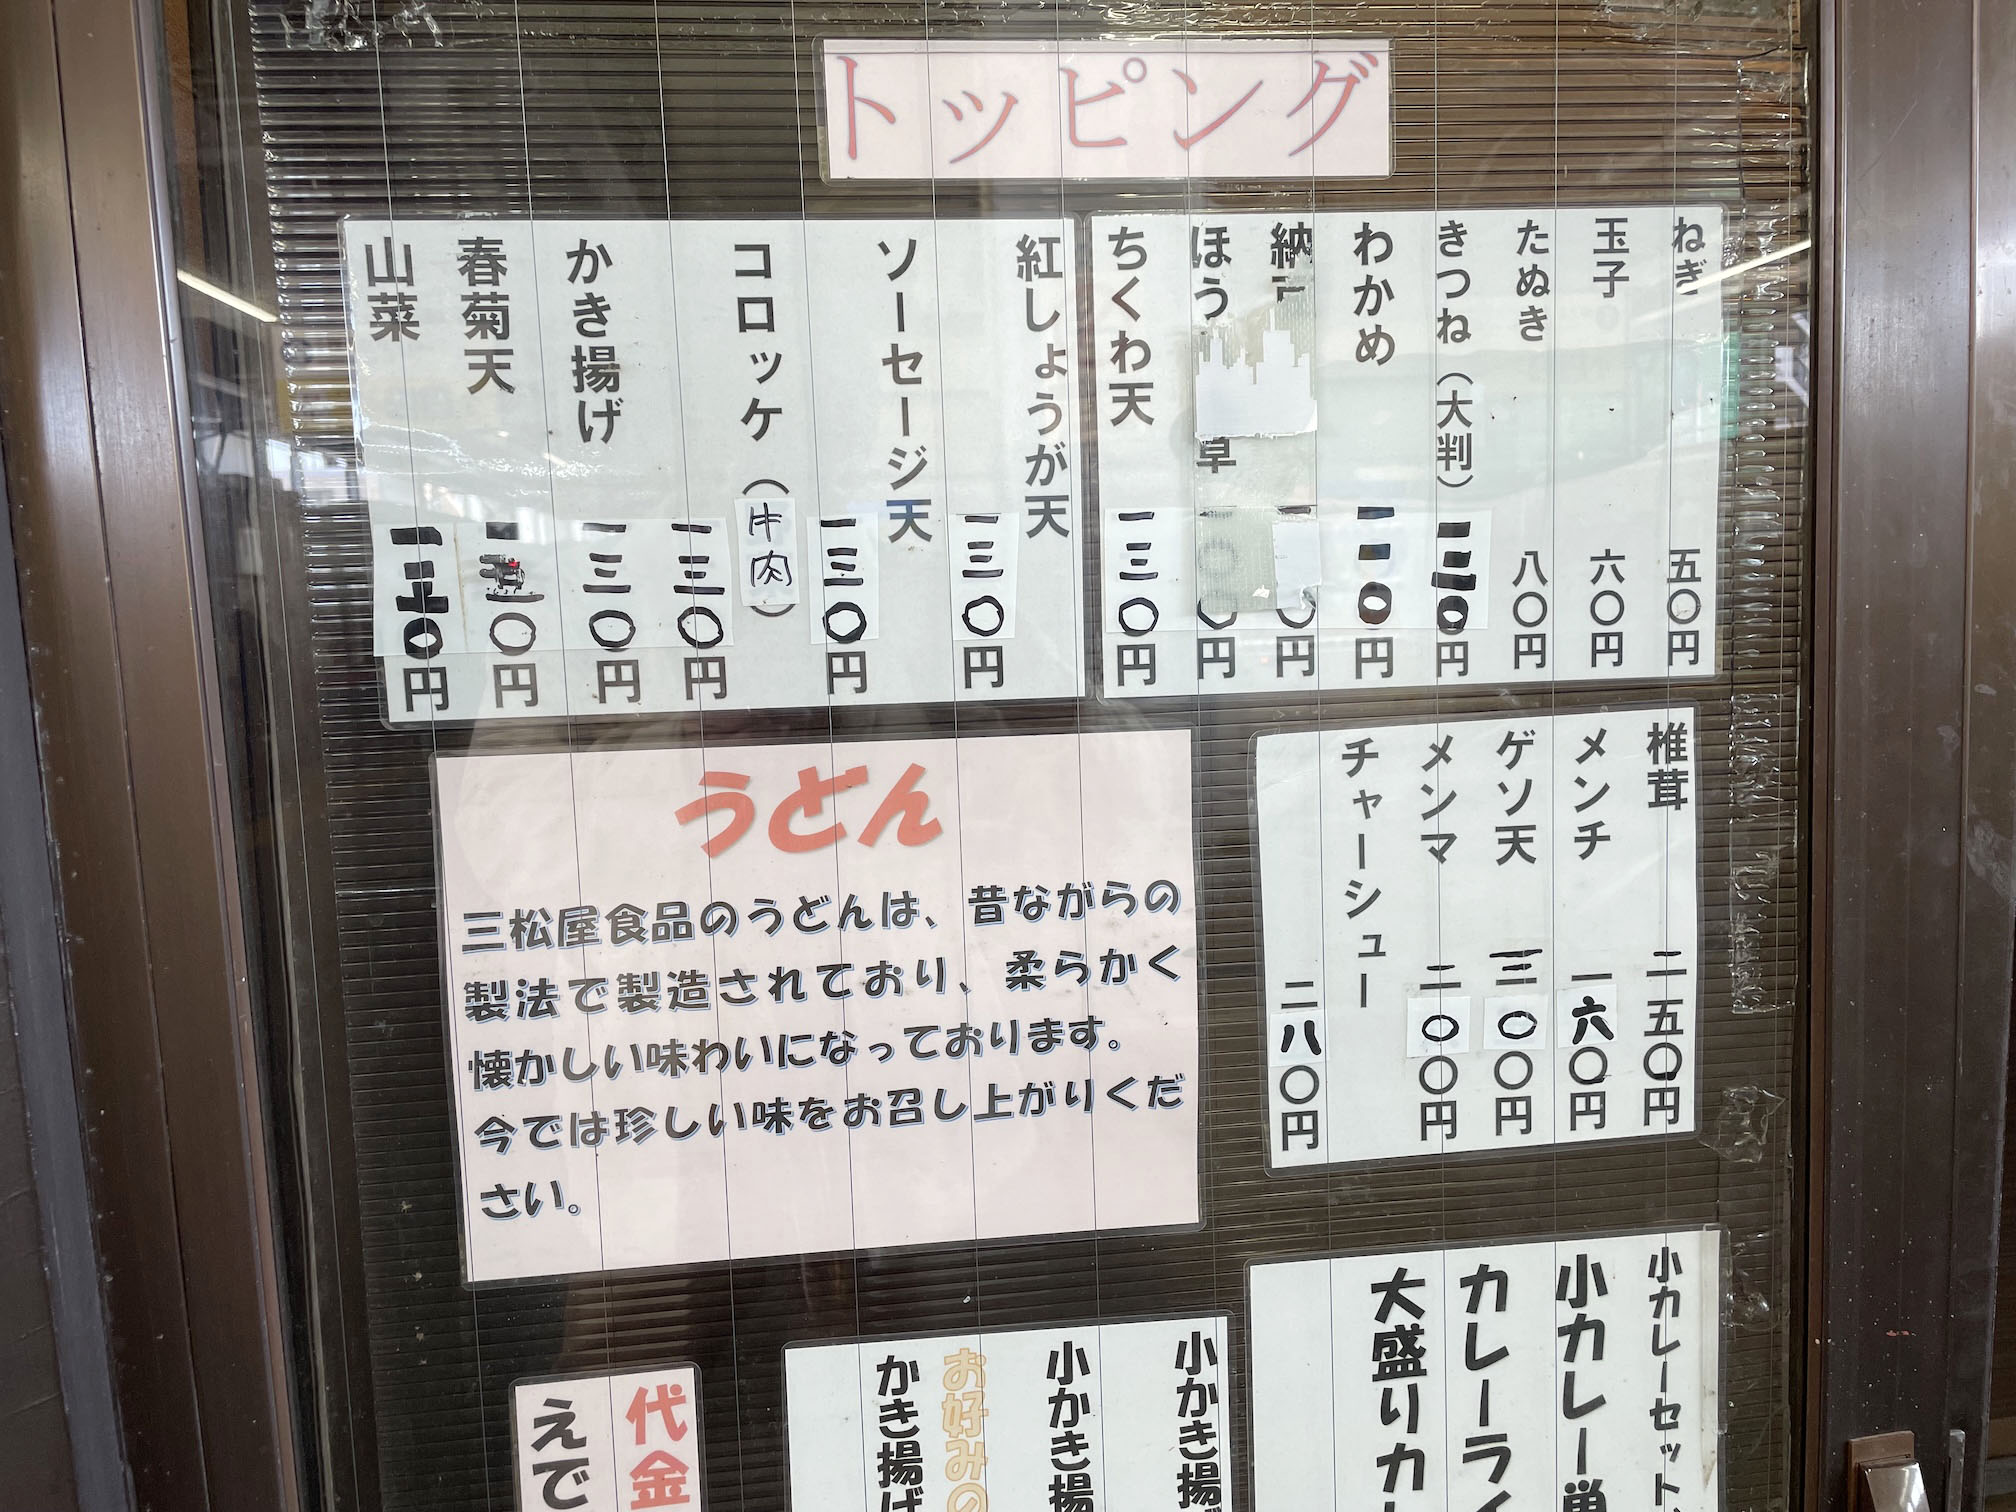 トッピング
ねぎ 五〇円
玉子 六〇円
たぬき 八〇円
きつね(大判) 一三〇円
わかめ 一一〇円
ちくわ天 一三〇円
紅しょうが天 一三〇円
ソーセージ天 一三〇円
コロッケ(牛肉) 一三〇円
かき揚げ 一三〇円
春菊天
山菜
椎茸 二五〇円
メンチ 一六〇円
ゲソ天 三〇〇円
メンマ 二〇〇円
チャーシュー 二八〇円
うどん
三松屋食品のうどんは、昔ながらの
製法で製造されており、柔らかく
懐かしい味わいになっております。
今では珍しい味をお召し上がりくだ
さい。
小カレーセット、
小カレー単
カレーライ
大盛りカ
小かき揚げ
小かき揚
お好みの
かき揚げ
代金
えで